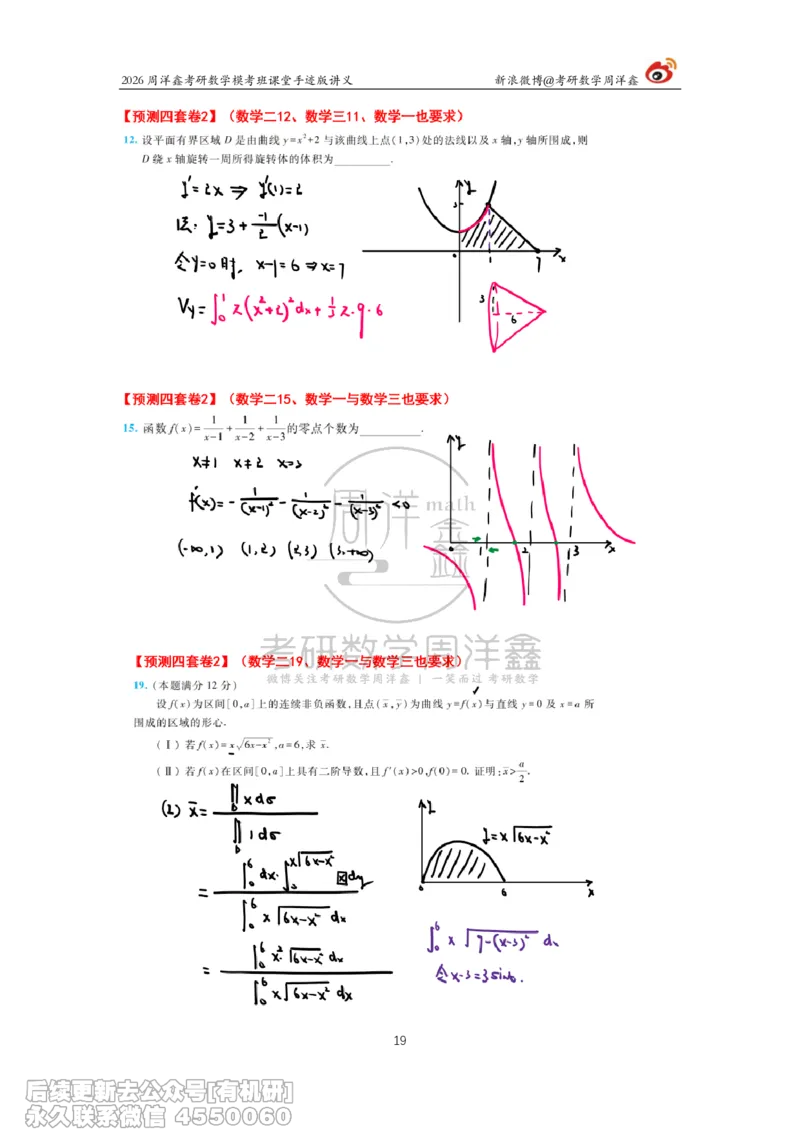 2026周洋鑫考研数学模考班课堂手迹版讲义 新浪微博@考研数学周洋鑫
【预测四套卷2】（数学二12、数学三11、数学一也要求）
12. 设平面有界区域 D 是由曲线 y=x²+2 与该曲线上点(1,3)处的法线以及 x 轴,y 轴所围成,则
D 绕 x 轴旋转一周所得旋转体的体积为________.
y'=2x ⇒ y'(1)=2
法: y=3+\frac{-1}{2}(x-1)
令y=0时, x-1=6 ⇒ x=7
V_y=∫_0^1 π(x²+2)²dx+\frac{1}{3}π·9·6
y
3
0
1
7
x
3
6
【预测四套卷2】（数学二15、数学一与数学三也要求）
15. 函数 f(x)=\frac{1}{x-1}+\frac{1}{x-2}+\frac{1}{x-3}的零点个数为________.
x≠1 x≠2 x=3
f'(x)=-\frac{1}{(x-1)²}-\frac{1}{(x-2)²}-\frac{1}{(x-3)²}<0
(-∞,1) (1,2) (2,3) (3,+∞)
y
0
1
2
3
x
周洋鑫
math
考研数学周洋鑫
微博关注考研数学周洋鑫 | 一笑而过 考研数学
【预测四套卷2】（数学二19、数学一与数学三也要求）
19. (本题满分 12 分)
设 f(x)为区间[0,a]上的连续非负函数,且点(x̄,ȳ)为曲线 y=f(x)与直线 y=0 及 x=a 所
围成的区域的形心.
(Ⅰ) 若 f(x)=x√(6x-x²),a=6,求 x̄.
(Ⅱ) 若 f(x)在区间[0,a]上具有二阶导数,且 f'(x)>0,f(0)=0. 证明:x̄>\frac{a}{2}.
(2) x̄=\frac{∬_D xdσ}{∬_D 1dσ}
=\frac{∫_0^6 dx·∫_0^{x√(6x-x²)} x dy}{∫_0^6 x√(6x-x²) dx}
=\frac{∫_0^6 x²·√(6x-x²) dx}{∫_0^6 x√(6x-x²) dx}
y
y=x√(6x-x²)
0
6
x
∫_0^6 x√(9-(x-3)²) dx
令x-3=3sint.
19
后续更新去公众号[有机研]
永久联系微信 4550060